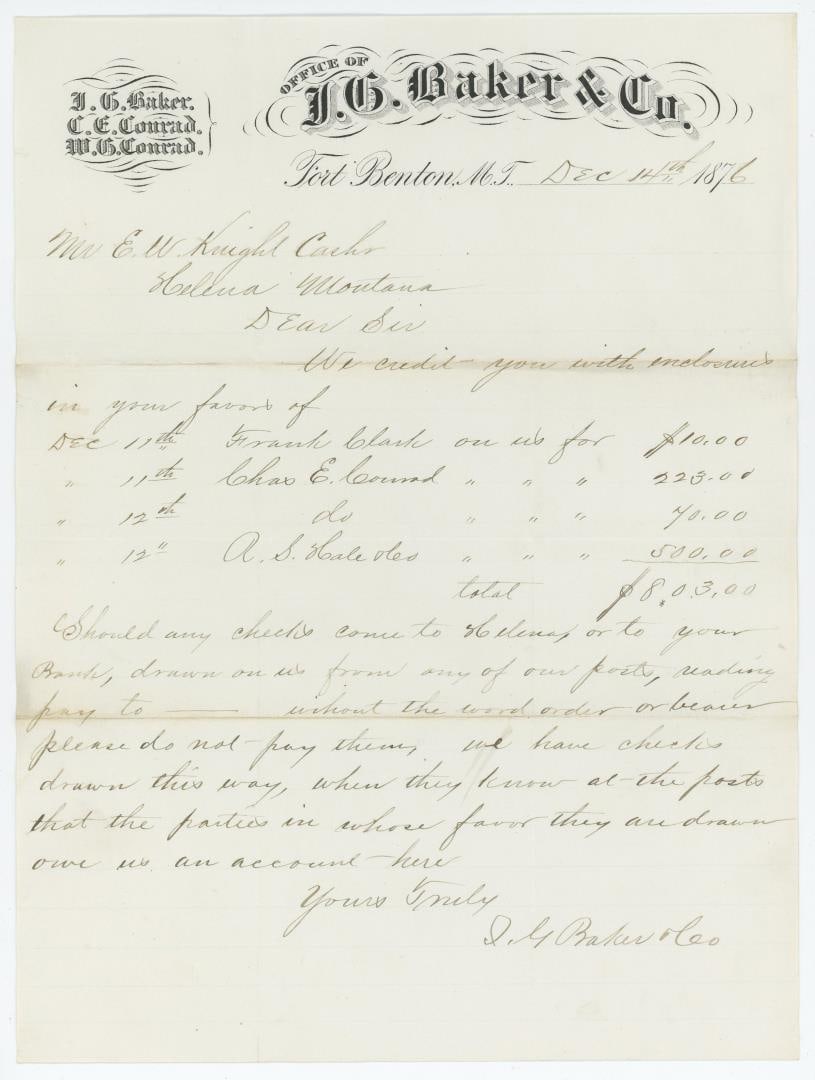 I. G. Baker.
C. E. Conrad.
W. G. Conrad.
OFFICE OF
I. G. Baker & Co.
Fort Benton, M.T. Dec 14th 1876
Mr E. W. Knight Cashr
Helena Montana
Dear Sir
We credit you with enclosures
in your favors of
Dec 11th Frank Clark on us for $10.00
" 11th Chas E. Conrad " " " 223.00
" 12th do " " " 70.00
" 12" A. S. Hale &Co " " " 500.00
total $803.00
Should any checks come to Helena, or to your
Bank, drawn on us from any of our posts, reading
pay to —— without the word order or bearer
please do not pay them, we have checks
drawn this way, when they know at the posts
that the parties in whose favor they are drawn
owe us an account here
Yours Truly
I. G Baker &Co